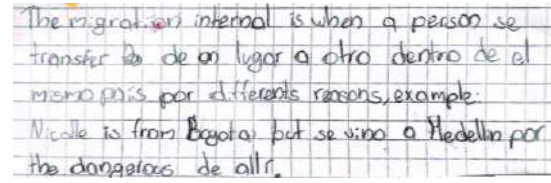 The migration internal is when a person se
transfer de un lugar a otro dentro de el
mismo pais por differents reasons, example:
Nicolle is from Bogota, but se vino a Medellin por
the dangerous de alli.